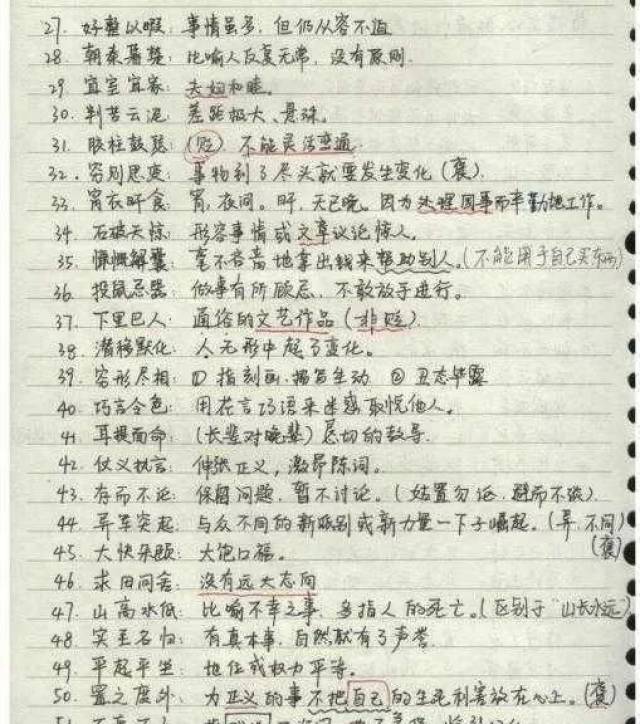 27. 好整以暇: 事情虽多, 但仍从容不迫
28. 朝秦暮楚: 比喻人反复无常, 没有原则.
29. 宜室宜家: 夫妇和睦。
30. 判若云泥: 差距极大、悬殊。
31. 胶柱鼓瑟: (贬) 不能灵活变通
32. 穷则思变: 事物到了尽头就要发生变化 (褒).
33. 宵衣旰食: 宵, 夜间。旰, 天已晚。因为处理国事而辛勤地工作。
34. 石破天惊: 形容事情或文章议论惊人。
35. 慷慨解囊: 毫不吝啬地拿出钱来帮助别人。(不能用于自己买东西)
36. 投鼠忌器: 做事有所顾忌, 不敢放手进行。
37. 下里巴人: 通俗的文艺作品 (非贬)
38. 潜移默化: 人无形中起了变化。
39. 穷形尽相: ① 指刻画、描写生动 ② 丑态毕露
40. 巧言令色: 用花言巧语来迷惑取悦他人。
41. 耳提面命: (长辈对晚辈) 恳切的教导.
42. 仗义执言: 伸张正义, 激昂陈词。
43. 存而不论: 保留问题, 暂不讨论。(姑置勿论, 避而不谈)
44. 异军突起: 与众不同的新派别或新力量一下子崛起。(异: 不同)
45. 大快朵颐: 大饱口福。 (褒)
46. 求田问舍: 没有远大志向
47. 山高水低: 比喻不幸之事, 多指人的死亡。(区别于"山长水远")
48. 实至名归: 有真本事, 自然就有了声誉.
49. 平起平坐: 地位或权力平等。
50. 置之度外: 为正义的事不把自己的生死利害放在心上。(褒)